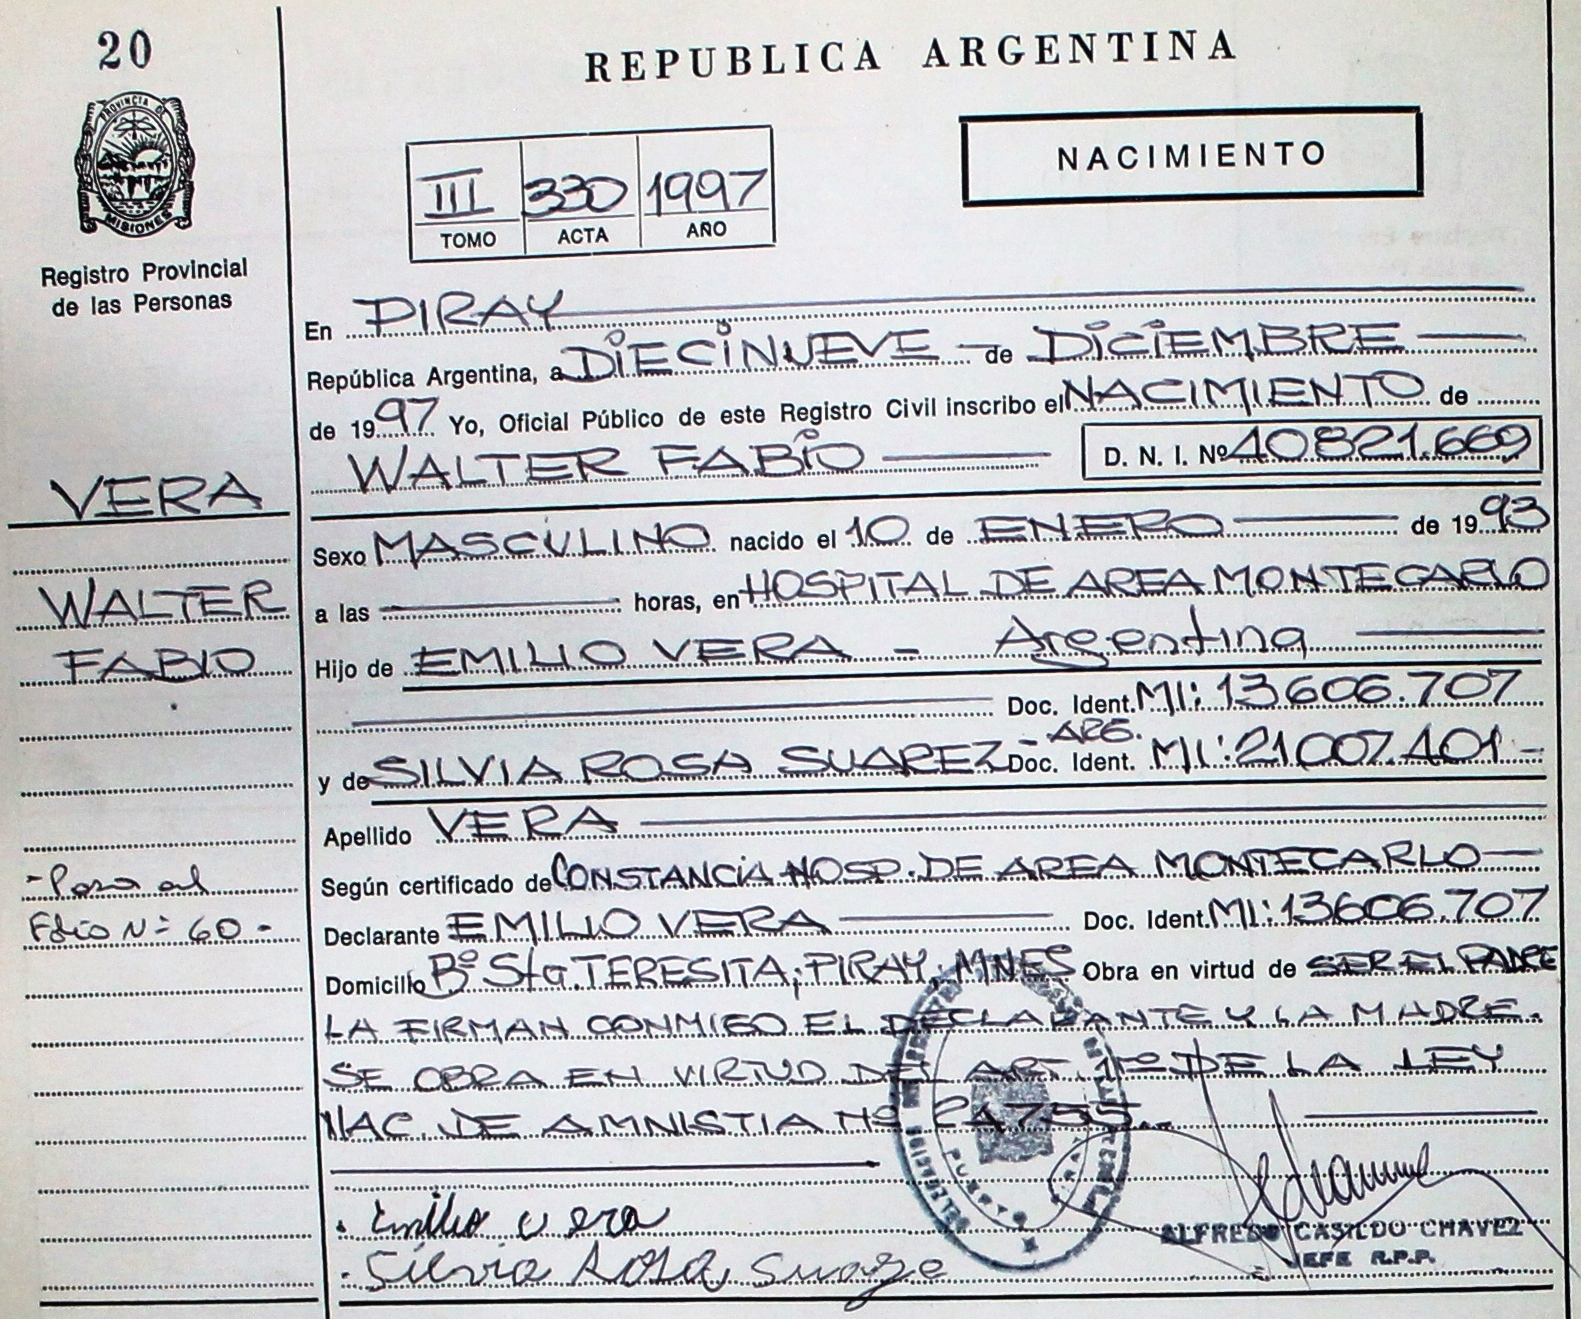 20
REPUBLICA ARGENTINA
PROVINCIA DE
MISIONES
NACIMIENTO
III 330 1997
TOMO ACTA AÑO
Registro Provincial
de las Personas
En PIRAY
República Argentina, a DIECINUEVE - de DICIEMBRE
de 1997 Yo, Oficial Público de este Registro Civil inscribo el NACIMIENTO de
WALTER FABIO D. N. I. Nº 40821.669
VERA
Sexo MASCULINO nacido el 10 de ENERO de 1993
WALTER
a las horas, en HOSPITAL DE AREA MONTECARLO
FABIO
Hijo de EMILIO VERA - Argentina
Doc. Ident. MI: 13606.707
- ARG.
y de SILVIA ROSA SUAREZ Doc. Ident. MI: 21007.401-
Apellido VERA
Según certificado de CONSTANCIA HOSP. DE AREA MONTECARLO
- Pasa al
Folio Nº 60 -
Declarante EMILIO VERA Doc. Ident. MI: 13606.707
Domicilio Bº Sta. TERESITA, PIRAY, MNES Obra en virtud de SER EL PADRE
LA FIRMAN CONMIGO EL DECLARANTE Y LA MADRE.
SE OBRA EN VIRTUD DEL ART. 1º DE LA LEY
NAC. DE AMNISTIA Nº 24755.
. Emilio vera
. Silvia Rosa Suarze
ALFREDO CASILDO CHAVEZ
JEFE R.P.P.